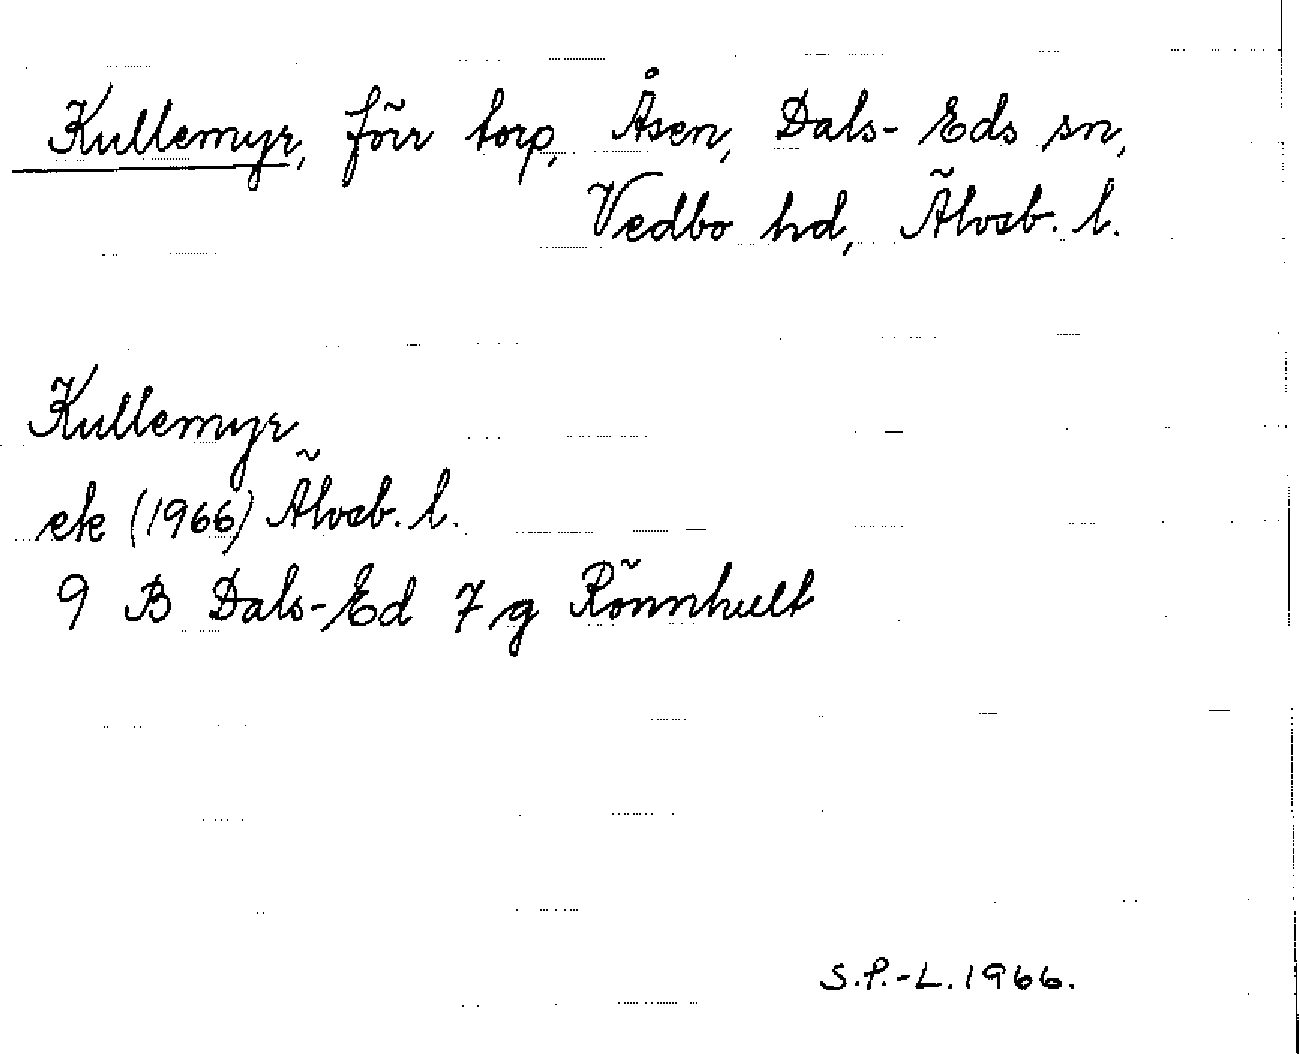 Kullemyr, förr torp, Åsen, Dals-Eds sn,
Vedbo hd, Älvsb. l.
Kullemyr
ek (1966) Älvsb. l.
9 B Dals-Ed 7 g Rönnhult
S.P.-L. 1966.